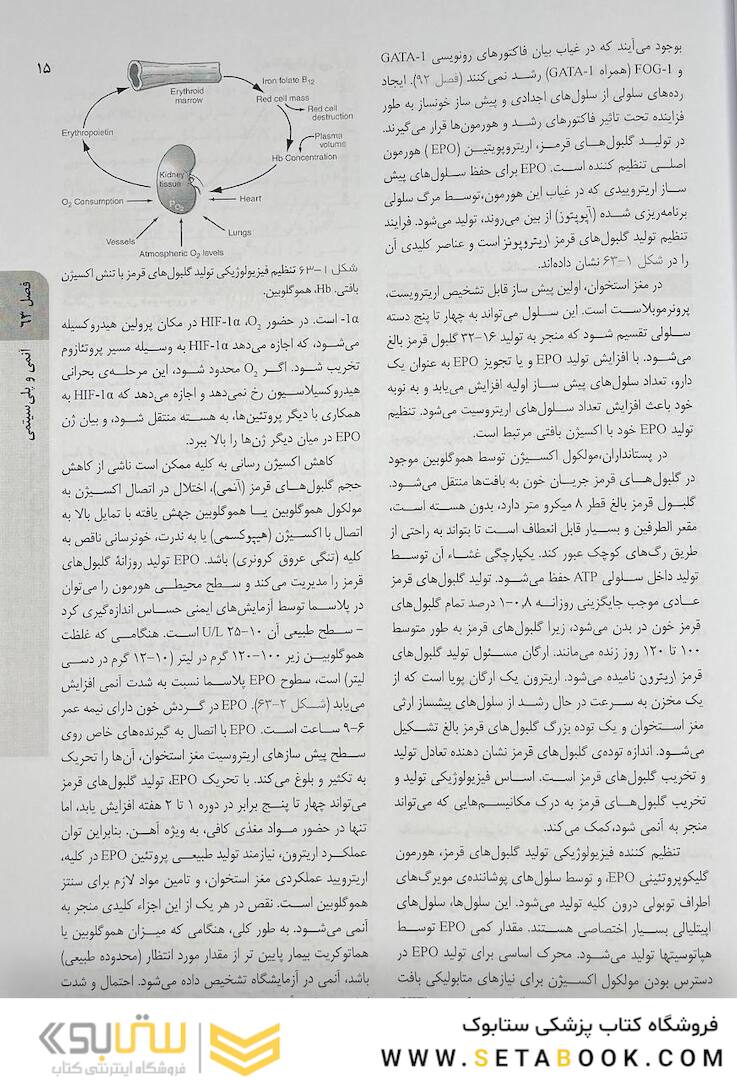 بوجود می‌آیند که در غیاب بیان فاکتورهای رونویسی GATA-1
و FOG-1 (همراه GATA-1) رشد نمی‌کنند (فصل ۹۲). ایجاد
رده‌های سلولی از سلول‌های اجدادی و پیش ساز خونساز به طور
فزاینده تحت تاثیر فاکتورهای رشد و هورمون‌ها قرار می‌گیرند.
در تولیـد گلبول‌هـای قرمـز، اریتروپویتیـن (EPO) هورمون
اصلـی تنظیم کننده اسـت. EPO برای حفظ سـلول‌های پیش
سـاز اریتروییدی که در غیاب این هورمون،توسط مرگ سلولی
برنامه‌ریزی شـده (آپوپتوز) از بین می‌روند، تولید می‌شود. فرایند
تنظیم تولید گلبول‌های قرمز اریتروپوئز است و عناصر کلیدی آن
را در شکل ۱-۶۳ نشان داده‌اند.
در مغز استخوان، اولین پیش ساز قابل تشخیص اریترویست،
پرونرموبلاست است. این سلول می‌تواند به چهار تا پنج دسته
سـلولی تقسیم شـود که منجر به تولید ۱۶-۳۲ گلبول قرمز بالغ
می‌شـود. با افزایش تولید EPO و یا تجویز EPO به عنوان یک
دارو، تعداد سـلول‌های پیش سـاز اولیه افزایش می‌یابد و به نوبه
خود باعث افزایش تعداد سـلول‌های اریتروسیت می‌شود. تنظیم
تولید EPO خود با اکسیژن بافتی مرتبط است.
در پستانداران،مولکول اکسـیژن توسط هموگلوبین موجود
در گلبول‌هـای قرمز جریـان خون به بافت‌ها منتقل می‌شـود.
گلبـول قرمز بالغ قطر ۸ میکرو متر دارد، بدون هسـته اسـت،
مقعر الطرفین و بسـیار قابل انعطاف اسـت تا بتواند به راحتی از
طریق رگ‌های کوچک عبور کند. یکپارچگی غشـاء آن توسـط
تولید داخل سـلولی ATP حفظ می‌شـود. تولید گلبول‌های قرمز
عـادی موجب جایگزینی روزانـه ۰٫۸-۱ درصد تمام گلبول‌های
قرمز خون در بدن می‌شود، زیرا گلبول‌های قرمز به طور متوسط
۱۰۰ تا ۱۲۰ روز زنده می‌مانند. ارگان مسـئول تولید گلبول‌های
قرمز اریترون نامیده می‌شود. اریترون یک ارگان پویا است که از
یک مخزن به سرعت در حال رشـد از سلول‌های پیشساز ارثی
مغز اسـتخوان و یک توده بزرگ گلبول‌های قرمز بالغ تشـکیل
می‌شـود. اندازه توده‌ی گلبول‌های قرمز نشان دهنده تعادل تولید
و تخریب گلبول‌های قرمز اسـت. اسـاس فیزیولوژیکی تولید و
تخریب گلبول‌هـای قرمز به درک مکانیسـم‌هایی که می‌تواند
منجر به آنمی شود،کمک می‌کند.
تنظیم کننده فیزیولوژیکی تولید گلبول‌های قرمز، هورمون
گلیکوپروتئینی EPO، و توسط سلول‌های پوشاننده‌ی مویرگ‌های
اطراف توبولی درون کلیه تولید می‌شود. این سلول‌ها، سلول‌های
اپیتلیالی بسـیار اختصاصی هسـتند. مقدار کمی EPO توسـط
هپاتوسیتها تولید می‌شـود. محرک اساسی برای تولید EPO در
دسترس بودن مولکول اکسـیژن برای نیازهای متابولیکی بافت
۱۵
Erythroid
marrow
Iron folate B12
Red cell mass
Red cell
destruction
Plasma
volume
Hb Concentration
Erythropoietin
Kidney
tissue
PO2
O2 Consumption
Heart
Vessels
Lungs
Atmospheric O2 levels
شکل ۱-۶۳ تنظیم فیزیولوژیکی تولید گلبول‌های قرمز با تنش اکسیژن
بافتی. Hb، هموگلوبین.
1α- است. در حضور O2، HIF-1α در مکان پرولین هیدروکسیله
می‌شـود، که اجازه می‌دهد HIF-1α به وسـیله مسیر پروتئازوم
تخریب شـود. اگـر O2 محدود شـود، این مرحلـه‌ی بحرانی
هیدروکسیلاسـیون رخ نمی‌دهد و اجازه می‌دهد که HIF-1α به
همکاری با دیگر پروتئین‌ها، به هسـته منتقل شـود، و بیان ژن
EPO در میان دیگر ژن‌ها را بالا ببرد.
کاهش اکسیژن رسانی به کلیه ممکن است ناشی از کاهش
حجم گلبول‌هـای قرمز (آنمی)، اختلال در اتصال اکسـیژن به
مولکول هموگلوبین یـا هموگلوبین جهش یافته با تمایل بالا به
اتصال با اکسـیژن (هیپوکسمی) یا به ندرت، خونرسانی ناقص به
کلیه (تنگی عروق کرونری) باشد. EPO تولید روزانهٔ گلبول‌های
قرمز را مدیریت می‌کند و سـطح محیطـی هورمون را می‌توان
در پلاسـما توسط آزمایش‌های ایمنی حساس اندازه‌گیری کرد
– سـطح طبیعی آن ۱۰-۲۵ U/L اسـت. هنگامـی که غلظت
هموگلوبیـن زیر ۱۰۰-۱۲۰ گرم در لیتر (۱۰-۱۲ گرم در دسـی
لیتر) است، سطوح EPO پلاسـما نسبت به شدت آنمی افزایش
می‌یابد (شـکل ۲-۶۳). EPO در گـردش خون دارای نیمه عمر
۶-۹ سـاعت اسـت. EPO با اتصال به گیرنده‌های خاص روی
سـطح پیش سازهای اریتروسیت مغز استخوان، آن‌ها را تحریک
به تکثیر و بلوغ می‌کند. با تحریک EPO، تولید گلبول‌های قرمز
می‌تواند چهار تا پنـج برابر در دوره ۱ تا ۲ هفته افزایش یابد، اما
تنها در حضور مـواد مغذی کافی، به ویژه آهـن. بنابراین توان
عملکـرد اریترون، نیازمند تولید طبیعـی پروتئین EPO در کلیه،
اریترویید عملکردی مغز استخوان، و تامین مواد لازم برای سنتز
هموگلوبین اسـت. نقص در هر یک از این اجزاء کلیدی منجر به
آنمی می‌شـود. به طور کلی، هنگامی که میـزان هموگلوبین یا
هماتوکریت بیمار پایین تر از مقدار مورد انتظار (محدوده طبیعی)
باشد، آنمی در آزمایشگاه تشخیص داده می‌شود. احتمال و شدت
فصل ۶۳
آنمی و پلی سیتمی
فروشگاه کتاب پزشکی ستابوک
WWW.SETABOOK.COM
ستابوک
فروشگاه اینترنتی کتاب